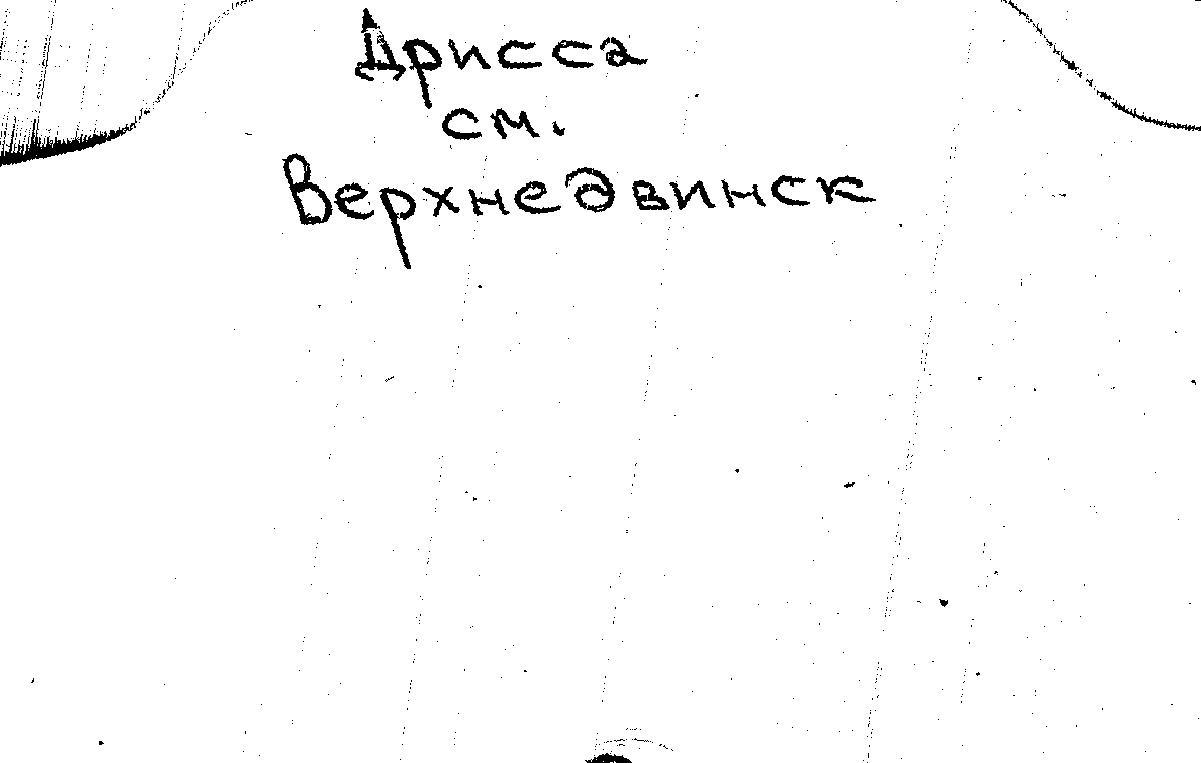 Дрисса
см.
Верхнедвинск